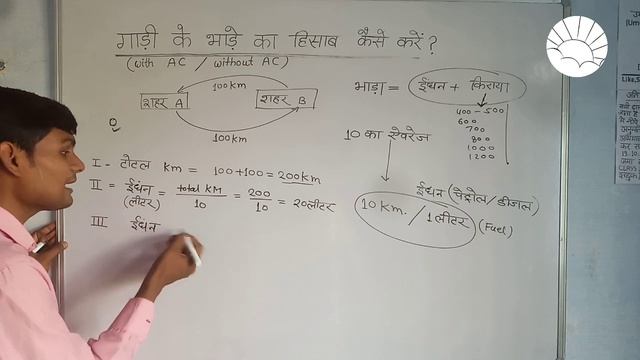 गाड़ी के भाड़े का हिसाब कैसे करें?
(with AC / without AC)
100km
शहर A
शहर B
100km
Q
I - टोटल km = 100+100 = 200km
II = ईंधन = total KM / 10 = 200 / 10 = 20लीटर
(लीटर)
III ईंधन
भाड़ा = ईंधन + किराया
400 - 500
600
700
800
1000
1200
10 का ऐवरेज
ईंधन (पेट्रोल / डीजल)
10 Km. / 1लीटर (Fuel)